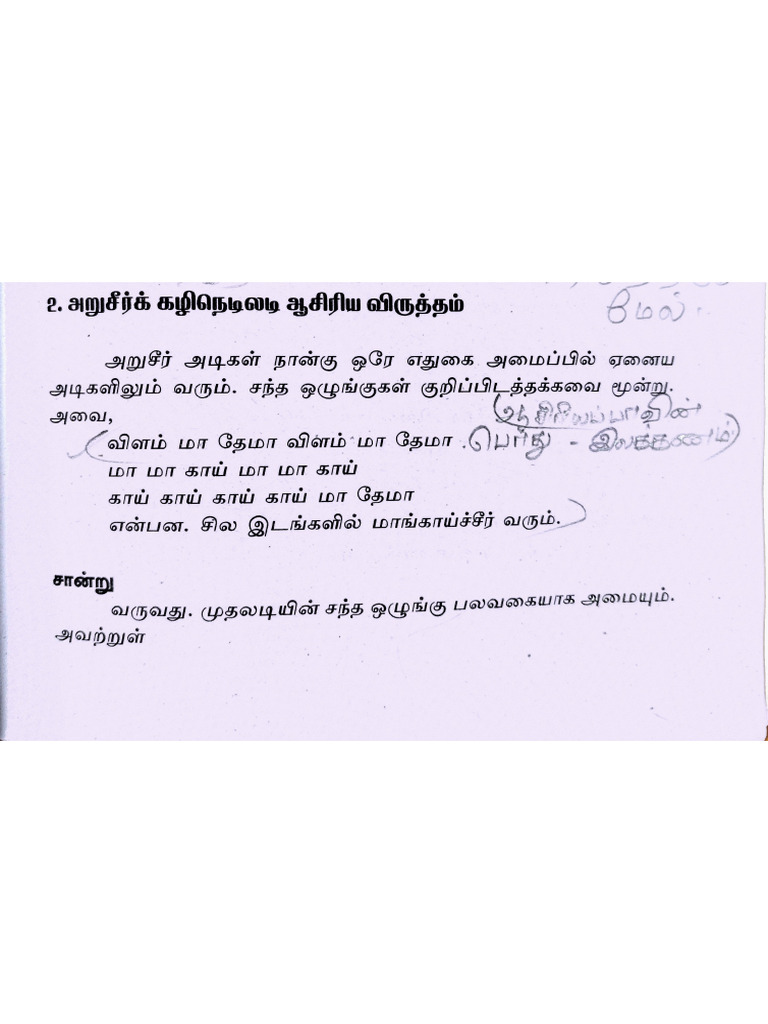 2. அறுசீர்க் கழிநெடிலடி ஆசிரிய விருத்தம்
மேல்
அறுசீர் அடிகள் நான்கு ஒரே எதுகை அமைப்பில் ஏனைய
அடிகளிலும் வரும். சந்த ஒழுங்குகள் குறிப்பிடத்தக்கவை மூன்று.
அவை,
ஆசிரியப்பாவின்
விளம் மா தேமா விளம் மா தேமா
பொது - இலக்கணம்)
மா மா காய் மா மா காய்
காய் காய் காய் காய் மா தேமா
என்பன. சில இடங்களில் மாங்காய்ச்சீர் வரும்.
சான்று
வருவது. முதலடியின் சந்த ஒழுங்கு பலவகையாக அமையும்.
அவற்றுள்